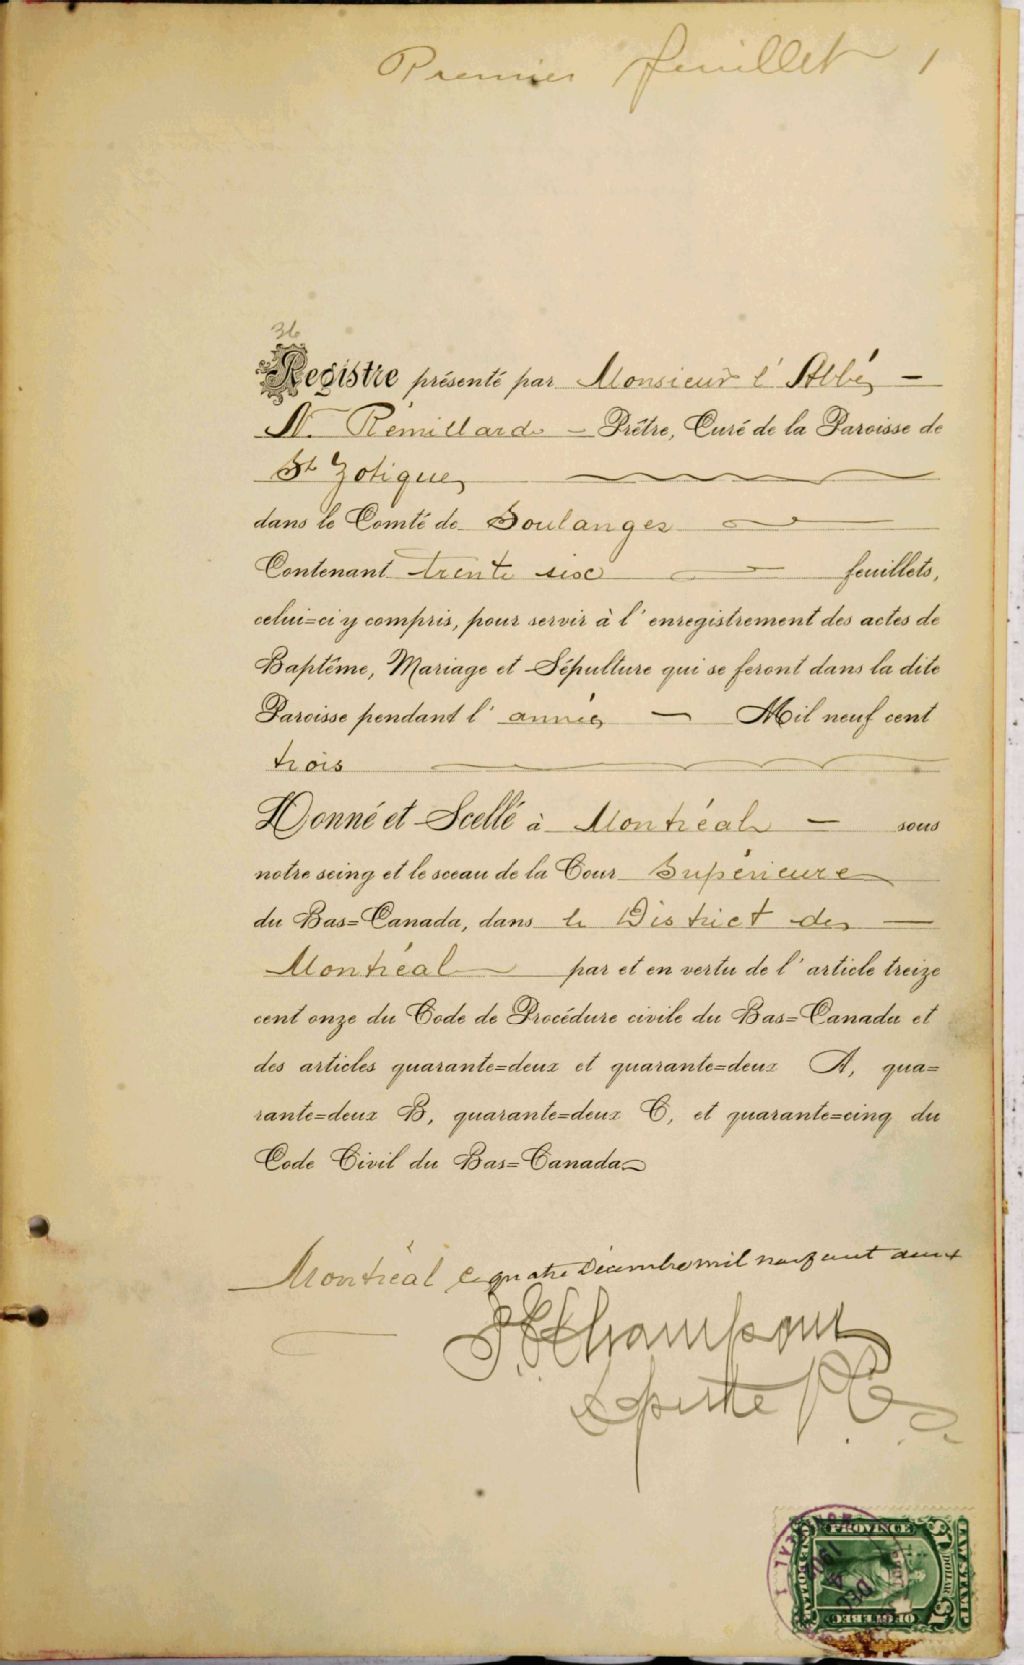 Premier feuillet 1
36
Registre présenté par Monsieur l'Abbé
N. Rémillard Prêtre, Curé de la Paroisse de
St Zotique
dans le Comté de Soulanges
Contenant trente six feuillets,
celui=ci y compris, pour servir à l'enregistrement des actes de
Baptême, Mariage et Sépulture qui se feront dans la dite
Paroisse pendant l'année Mil neuf cent
trois
Donné et Scellé à Montréal sous
notre seing et le sceau de la Cour Supérieure
du Bas=Canada, dans le District de
Montréal par et en vertu de l'article treize
cent onze du Code de Procédure civile du Bas=Canada et
des articles quarante=deux et quarante=deux A, qua=
rante=deux B, quarante=deux C, et quarante=cinq du
Code Civil du Bas=Canada
Montréal ce quatre Décembre mil neuf cent deux
Champoux
Dépt P.C.S.
PROVINCE
OF QUEBEC
LAW STAMP
$1 DOLLAR $1
MONTREAL
DEC 4